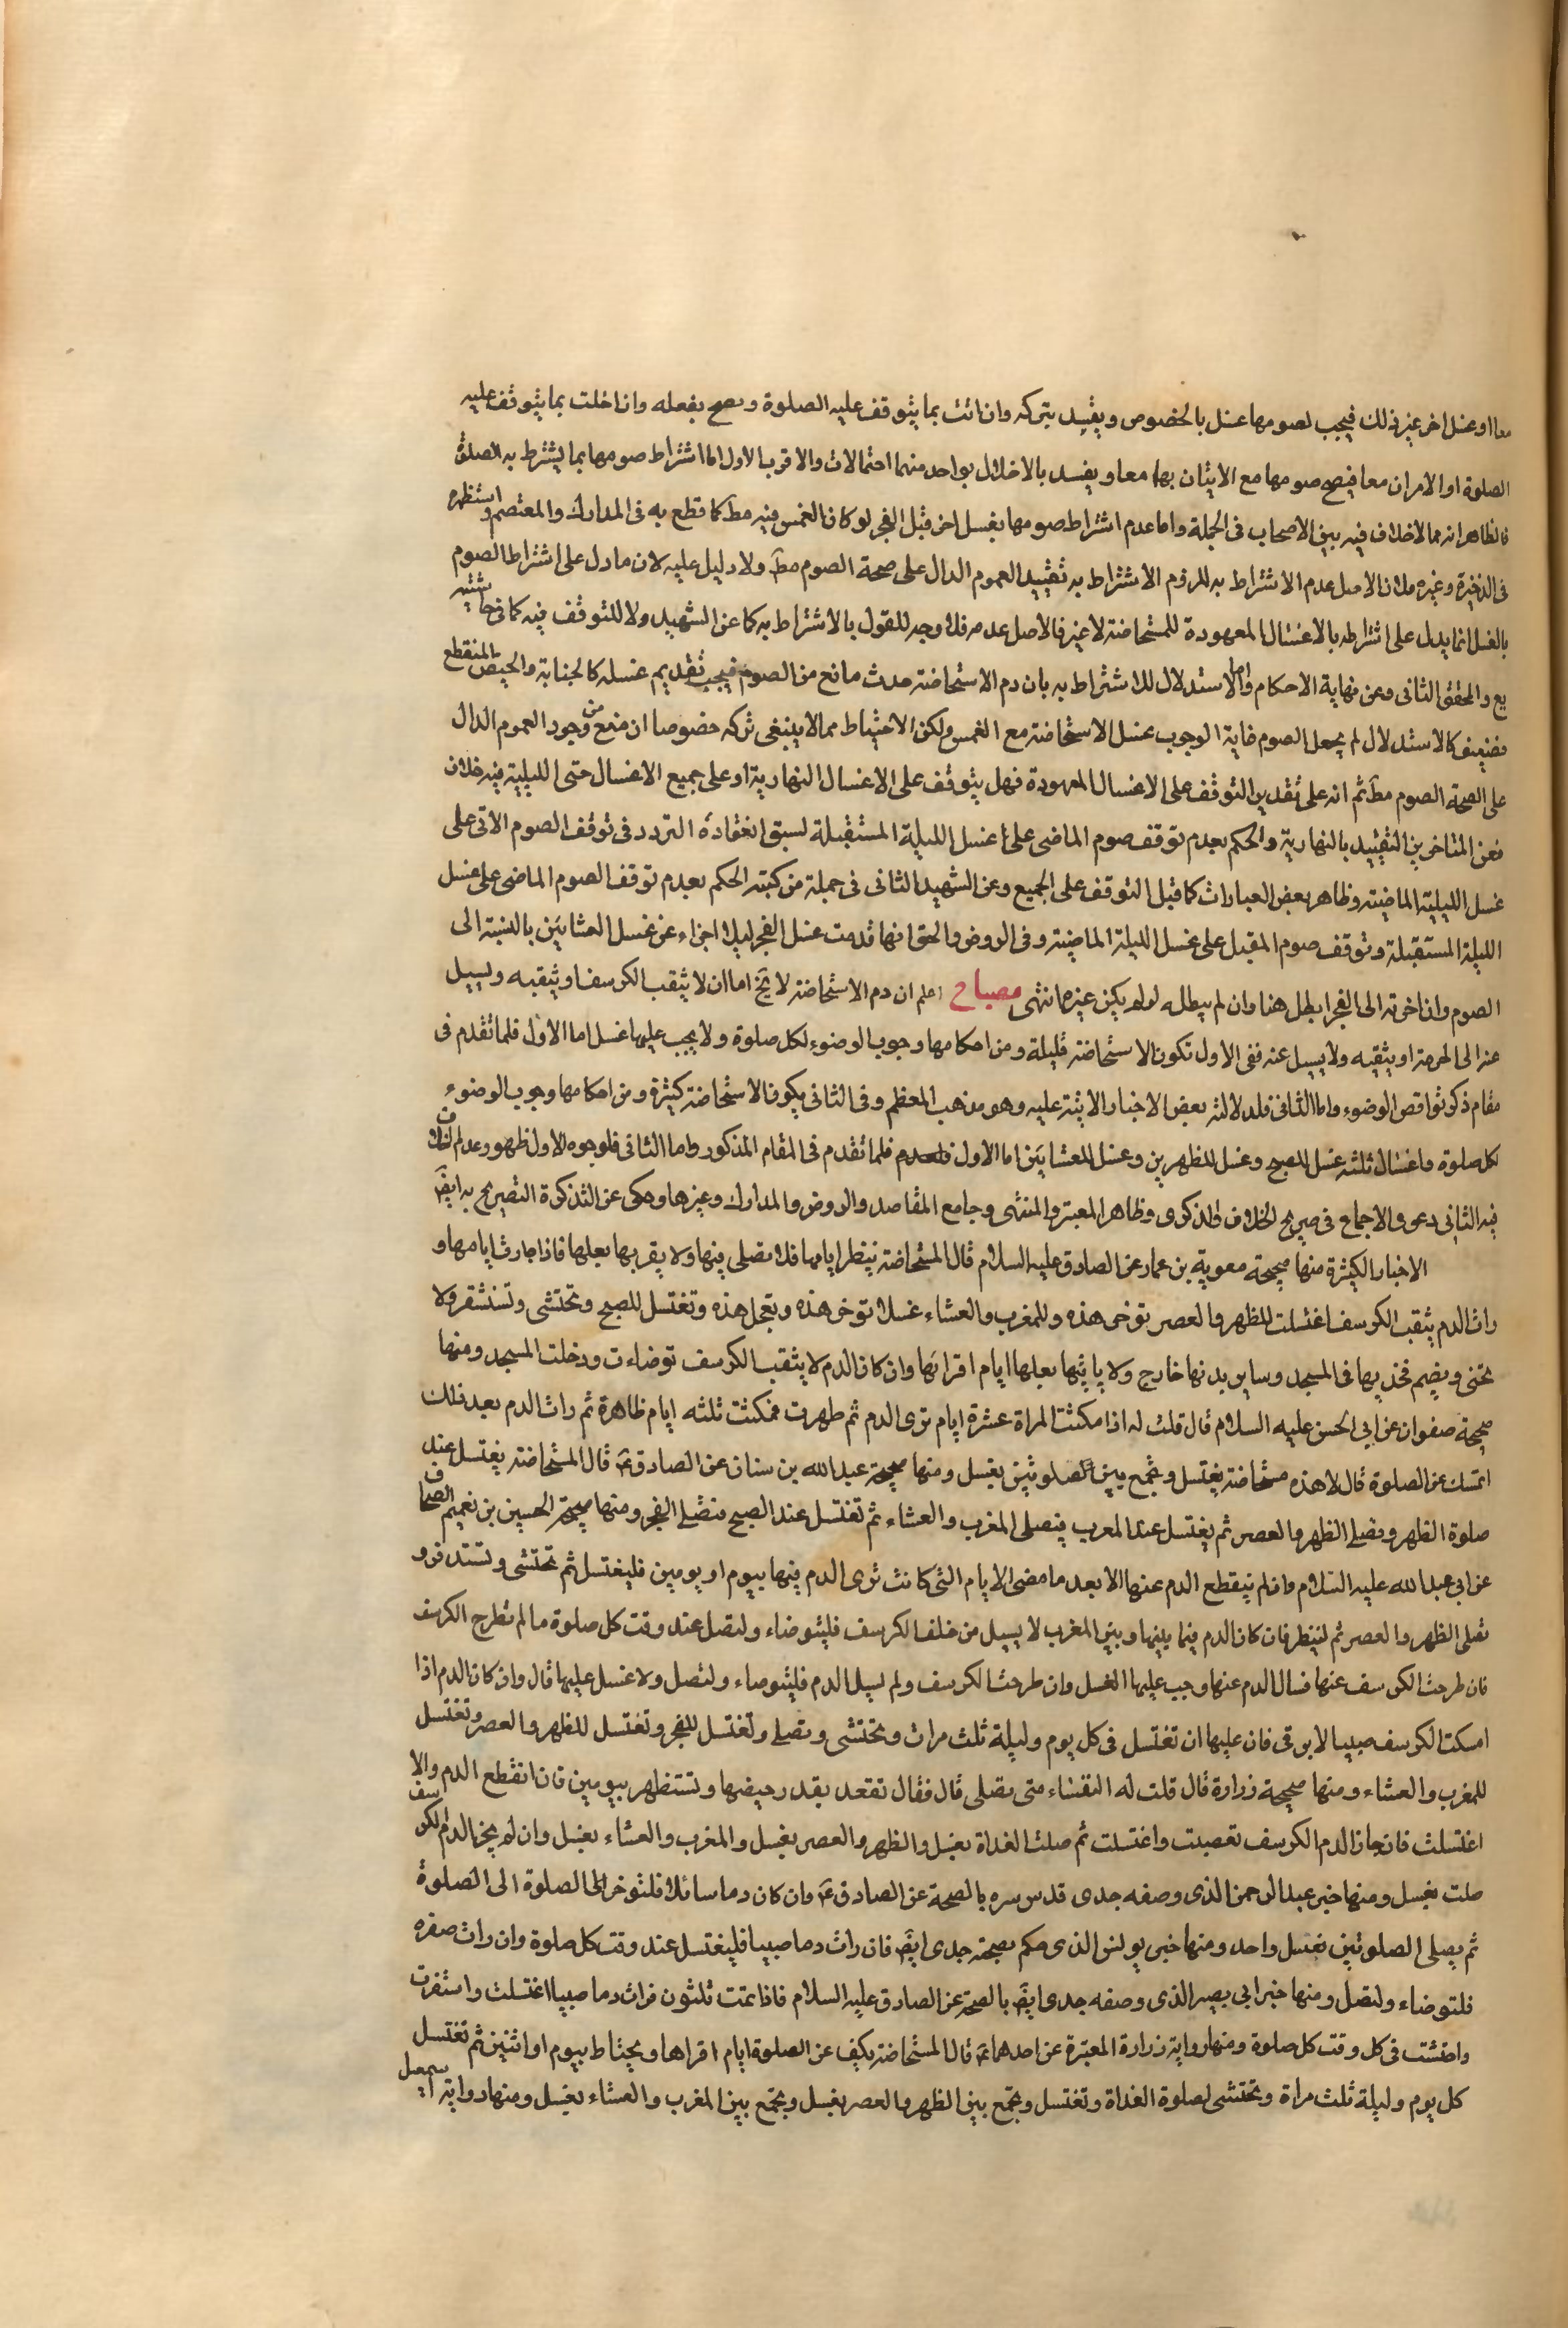 معا او غسل اخر غير ذلك فيجب لصومها غسل بالخصوص ويفسد بتركه وان اتت بما يتوقف عليه الصلوة ويصح بفعله وان اخلت بما يتوقف عليه
الصلوة او الامران معا فيصح صومها مع الاتيان بهما معا ويفسد بالاخلال بواحد منهما احتمالات والاقرب الاول اما اشتراط صومها بما يشترط به الصلوة
فالظاهر انه مما لاخلاف فيه بين الاصحاب فى الجملة واما عدم اشتراط صومها بغسل اخر قبل الفجر لو كان الغمس فيه مط كما قطع به فى المدارك والمعتصم واستظهره
فى الذخيرة وغيره فلان الاصل عدم الاشتراط به للزوم الاشتراط به تقييد العموم الدال على صحة الصوم مط ولا دليل عليه لان ما دل على اشتراط الصوم
بالغسل انما يدل على اشتراطه بالاغسال المعهودة للمستحاضة لا غير فالاصل عدمه فلا وجه للقول بالاشتراط به كما عن الشهيد ولا للتوقف فيه كما فى حاشيته
يع والمحقق الثانى وعن نهاية الاحكام واما الاستدلال للاشتراط به بان دم الاستحاضة حدث مانع من الصوم فيجب تقديم غسله كالجنابة والحيض المنقطع
فضعيف كالاستدلال لم يجعل الصوم غاية الوجوب غسل الاستحاضة مع الغمس ولكن الاحتياط مما لا ينبغى تركه خصوصا ان منع من وجود العموم الدال
على الصحة الصوم مط ثم انه على تقدير التوقف على الاغسال المعهودة فهل يتوقف على الاغسال النهارية او على جميع الاغسال حتى الليلية فيه خلاف
فعن المتاخرين التقييد بالنهارية والحكم بعدم توقف صوم الماضى على غسل الليلة المستقبلة لسبق انعقاده التردد فى توقف الصوم الآتى على
غسل الليلية الماضية وظاهر بعض العبارات كما قيل التوقف على الجميع وعن الشهيد الثانى فى جملة من كتبه الحكم بعدم توقف الصوم الماضى على غسل
الليلة المستقبلة وتوقف صوم المقبل على غسل الليلة الماضية وفى الروض والحق انها قدمت غسل الفجر ليلا اجزاء عن غسل العشائين بالنسبة الى
الصوم وان اخرته الى الفجر ابطل هنا وان لم يبطله لو لم يكن غيره انتهى مصباح اعلم ان دم الاستحاضة لا يخ اما ان لا يثقب الكرسف او يثقبه ويسيل
عنه الى الخرقة او يثقبه ولا يسيل عنه ففى الاول تكون الاستحاضة قليلة ومن احكامها وجوب الوضوء لكل صلوة ولا يجب عليها غسل اما الاول فلما تقدم فى
مقام ذكر نواقض الوضوء واما الثانى فلدلالته بعض الاخبار الاتية عليه وهو مذهب المعظم وفى الثانى يكون الاستحاضة كثيرة ومن احكامها وجوب الوضوء
لكل صلوة واغسال ثلثه غسل للصبح وغسل للظهرين وغسل للعشائين اما الاول فلما تقدم فى المقام المذكور واما الثانى فلوجوه الاول ظهور عدم الخلاف
فيه الثانى دعوى الاجماع فى صريح الخلاف والذكرى وظاهر المعتبر والمنتهى وجامع المقاصد والروض والمدارك وغيرها وحكى عن التذكرة التصريح به ايض
الاخبار الكثيرة منها صحيحة معوية بن عمار عن الصادق عليه السلام قال المستحاضة تنتظر ايامها فلا تصلى فيها ولا يقربها بعلها فاذا جازت ايامها و
رات الدم يثقب الكرسف اغتسلت للظهر والعصر توخر هذه وللمغرب والعشاء غسلا توخر هذه وتعجل هذه وتغتسل للصبح وتحتشى وتستثفر ولا
تحنى ويضم فخذيها فى المسجد وساير بدنها خارج ولا ياتيها بعلها ايام اقرائها وان كان الدم لا يثقب الكرسف توضاءت ودخلت المسجد ومنها
صحيحة صفوان عن ابى الحسن عليه السلام قال قلت له اذا مكثت المراة عشرة ايام ترى الدم ثم طهرت فمكثت ثلثه ايام طاهرة ثم رات الدم بعد ذلك
اتمسك عن الصلوة قال لا هذه مستحاضة يغتسل ويجمع بين الصلوتين بغسل ومنها صحيحة عبدالله بن سنان عن الصادق ع قال المستحاضة يغتسل عند
صلوة الظهر وتصلى الظهر والعصر ثم يغتسل عند المغرب فيصلى المغرب والعشاء ثم تغتسل عند الصبح فتصلى الفجر ومنها صحيحة الحسين بن نعيم الصحاف
عن ابى عبدالله عليه السلام وان لم ينقطع الدم عنها الا بعد ما مضى الايام التى كانت ترى الدم فيها بيوم او يومين فليغتسل ثم تحتشى وتستذفر و
تصلى الظهر والعصر ثم لينظر فان كان الدم فيما بينها وبين المغرب لا يسيل من خلف الكرسف فليتوضاء ولتصل عند وقت كل صلوة ما لم تطرح الكرسف
فان طرحت الكرسف عنها فسال الدم عنها وجب عليها الغسل وان طرحت الكرسف ولم يسل الدم فليتوضاء ولتصل ولا غسل عليها قال وان كان الدم اذا
امسكت الكرسف صبيبا لا يرقى فان عليها ان تغتسل فى كل يوم وليلة ثلث مرات وتحتشى وتصلى وتغتسل للفجر وتغتسل للظهر والعصر وتغتسل
للمغرب والعشاء ومنها صحيحة زرارة قال قلت له النفساء متى يصلى قال فقال تقعد بقدر حيضها وتستظهر بيومين فان انقطع الدم والا
اغتسلت فان جاز الدم الكرسف تعصبت واغتسلت ثم صلت الغداة بغسل والظهر والعصر بغسل والمغرب والعشاء بغسل وان لم يجز الدم الكرسف
صلت بغسل ومنها خبر عبدالرحمن الذى وصفه جدى قدس سره بالصحة عن الصادق ع وان كان دما سائلا فلتوخر الصلوة الى الصلوة
ثم يصلى الصلوتين بغسل واحد ومنها خبر يونس الذى حكم بصحته جدى ايض فان رات دما صبيبا فليغتسل عند وقت كل صلوة وان رات صفره
فلتوضاء ولتصل ومنها خبر ابى بصير الذى وصفه جدى ايض بالصحة عن الصادق عليه السلام فاذا تمت ثلثون فرات دما صبيبا اغتسلت واستثفرت
واحتشت فى كل وقت كل صلوة ومنها رواية زرارة المعتبرة عن احدهما ع قال المستحاضة يكف عن الصلوة ايام اقراها ويحتاط بيوم او اثنين ثم تغتسل
كل يوم وليلة ثلث مراة وتحتشى لصلوة الغداة وتغتسل وتجمع بين الظهر والعصر بغسل وتجمع بين المغرب والعشاء بغسل ومنها رواية اسمعيل